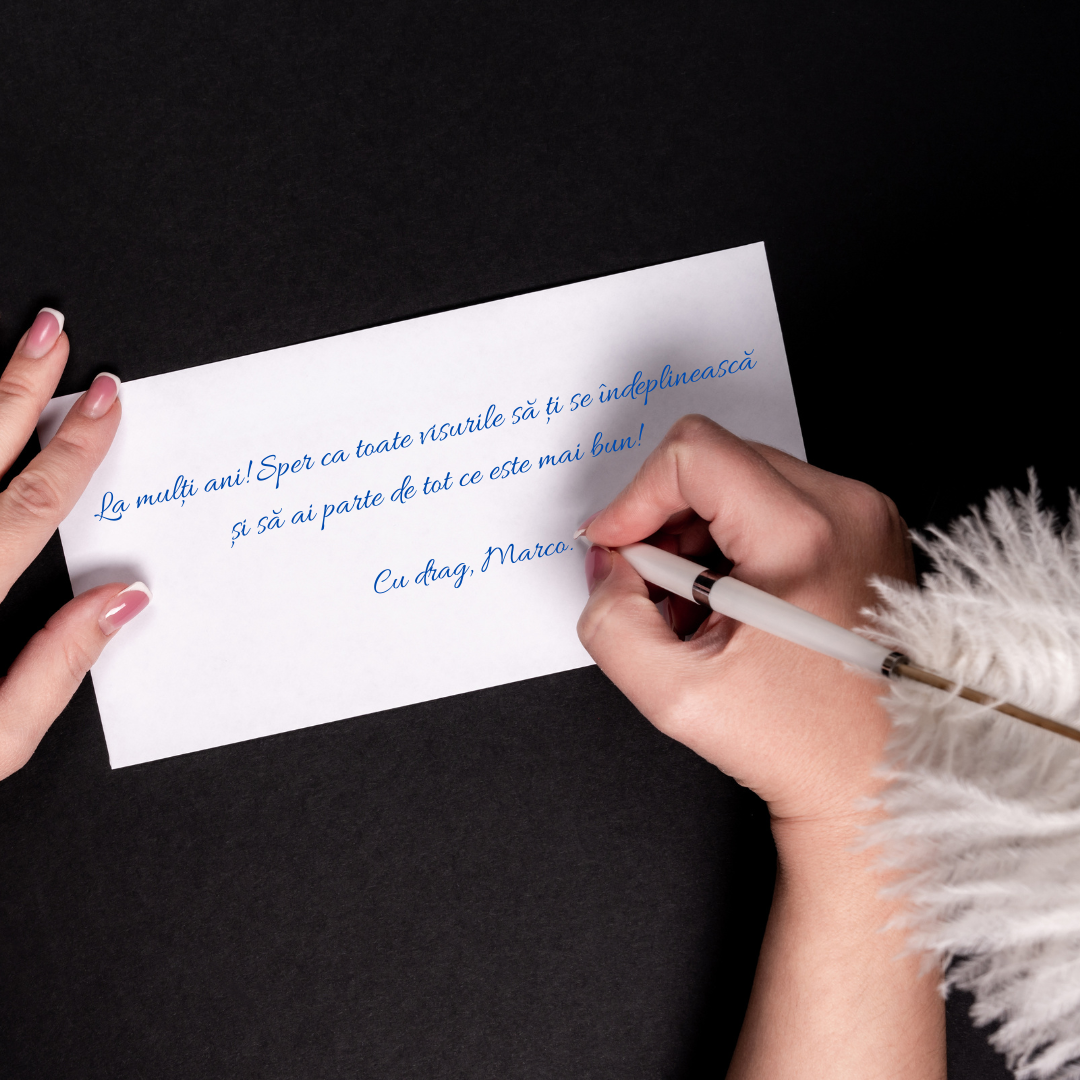 La mulți ani! Sper ca toate visurile să ți se îndeplinească
și să ai parte de tot ce este mai bun!
Cu drag, Marco.